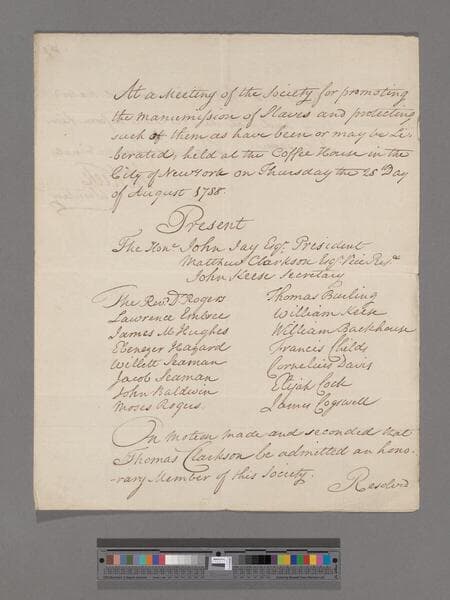 At a Meeting of the Society for promoting
the manumission of Slaves and protecting
such of them as have been or may be Li-
berated, held at the Coffee House in the
City of New York on Thursday the 28th Day
of August 1788.
Present
The Honl. John Jay Esqr. President
Matthew Clarkson Esqr. Vice Pres.
John Keese Secretary
The Revd. Dr. Rogers
Lawrence Embree
James M Hughes
Ebenezer Hazard
Willett Seaman
Jacob Seaman
John Baldwin
Moses Rogers.
Thomas Burling
William Keese
William Backhouse
Francis Childs
Cornelius Davis
Elijah Cock
James Cogswell
On motion made and seconded that
Thomas Clarkson be admitted an hono-
rary Member of this Society.
Resolvd